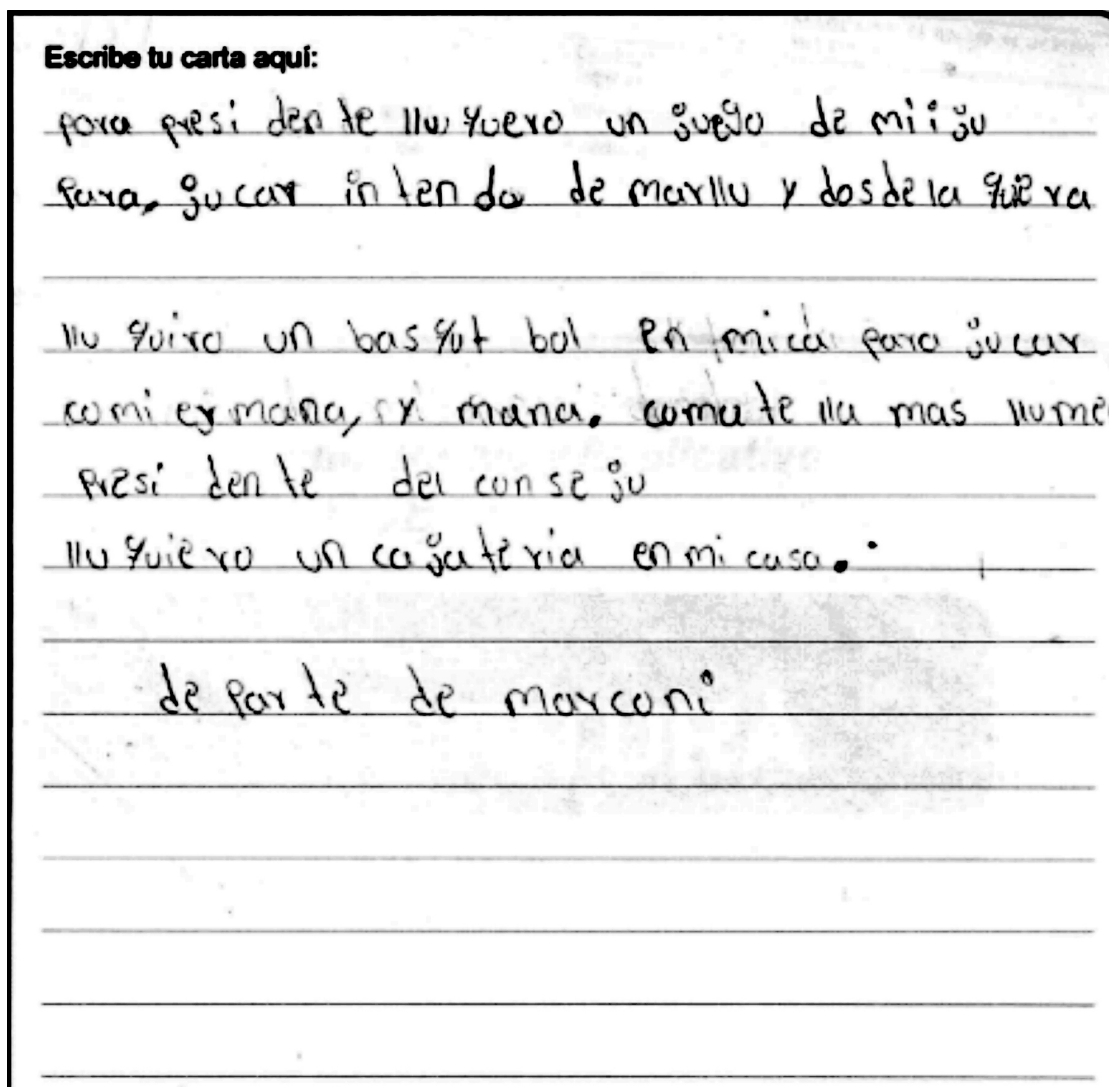 Escribe tu carta aquí:
para presi den te llu quero un juejo de mi i ju
para, jucar in ten do de marllu y dos de la quiera
llu quiro un bas qut bol en mica para jucar
comi ermana, y mana. coma te lla mas llume
presi den te del con se ju
llu quiero un cajateria en mi casa.
de par te de marconi